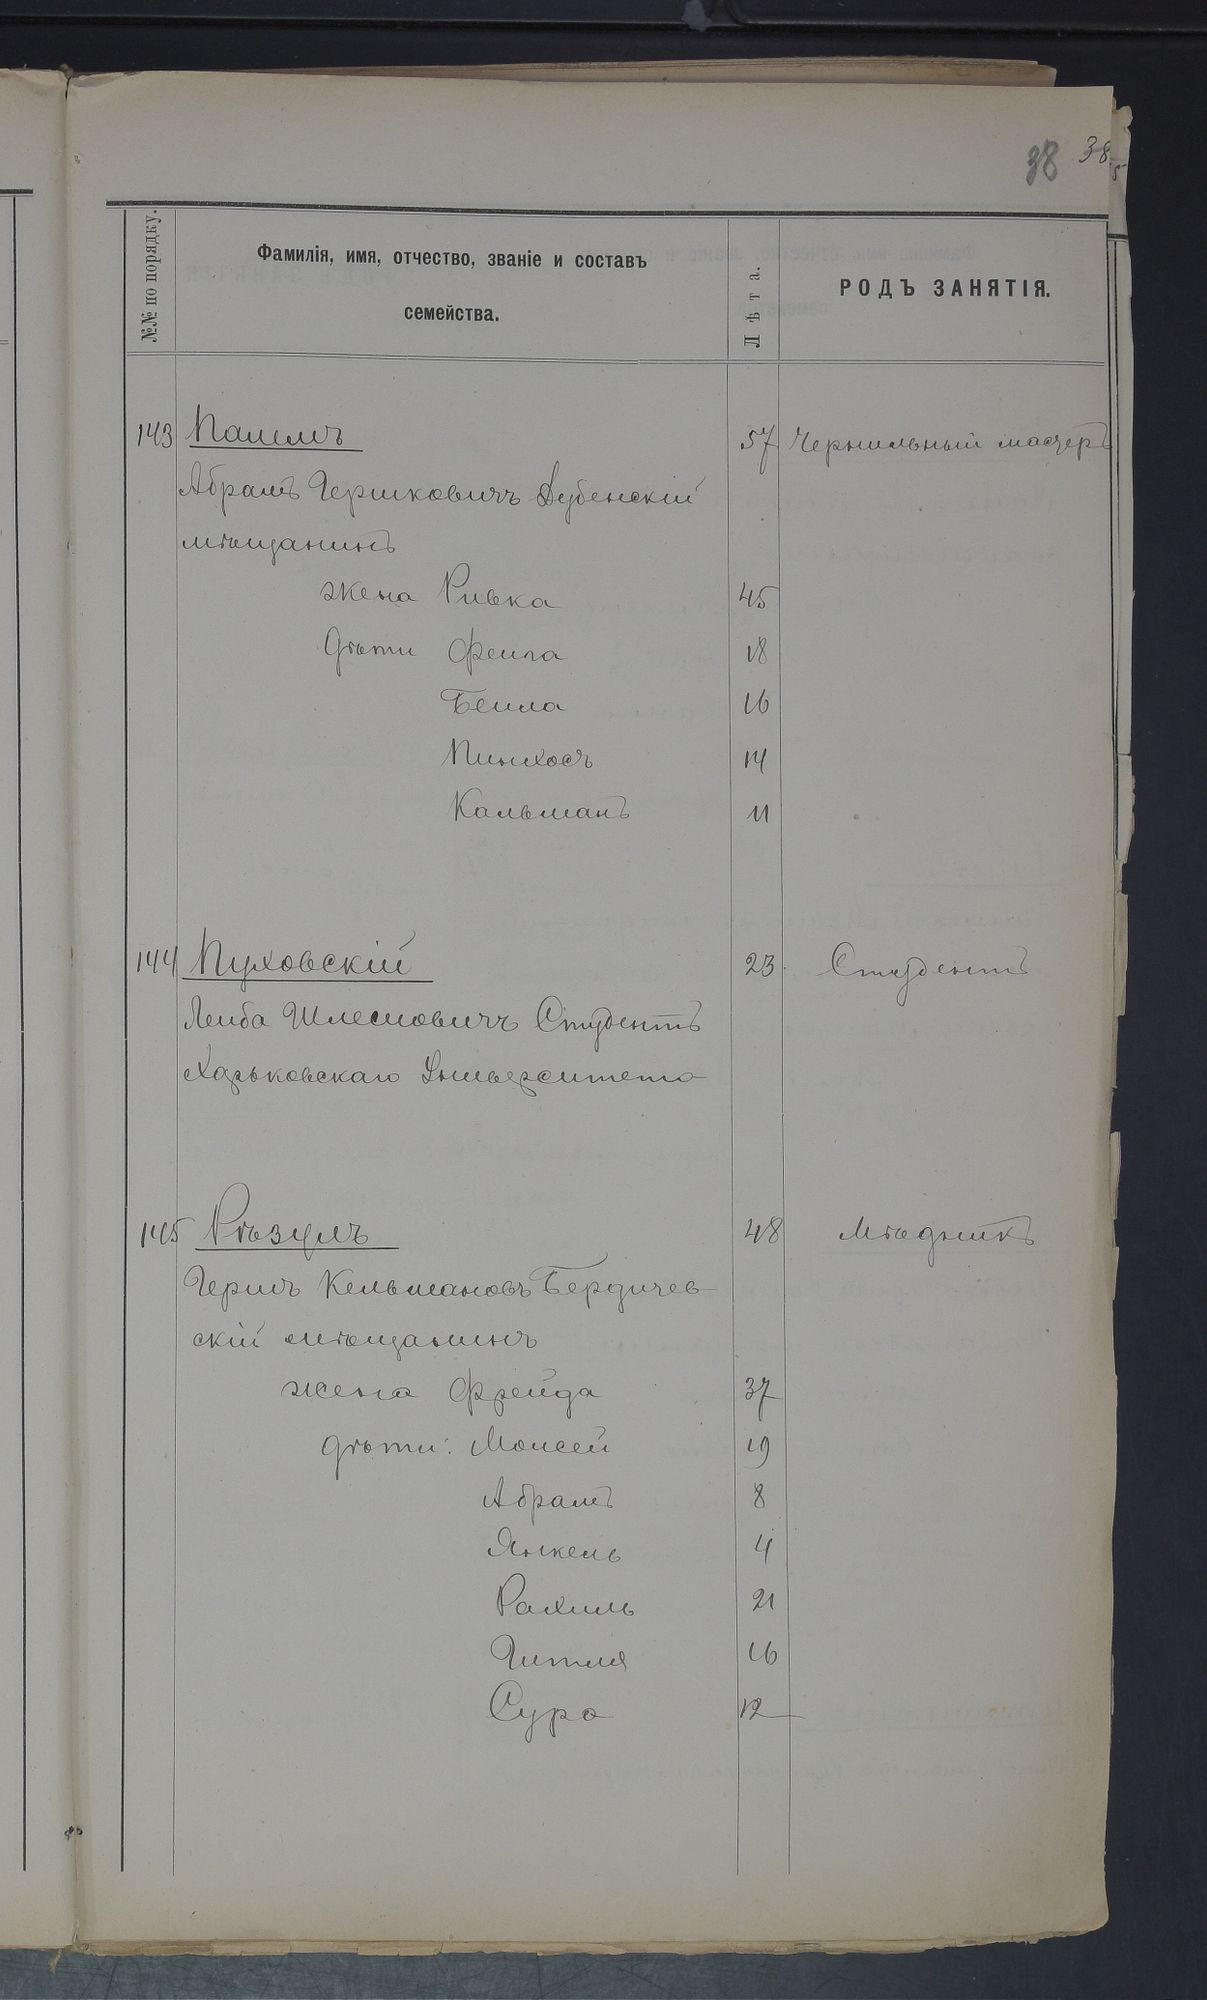 38 38
№№ по порядку.
Фамилія, имя, отчество, званіе и составъ
семейства.
Лѣта.
РОДЪ ЗАНЯТІЯ.
143 57 Чернильный мастеръ
Абрамъ Гершковичъ Дубенскій
мѣщанинъ
жена Ривка 45
дѣти Фейга 18
Бейла 16
Пинхосъ 14
Кальманъ 11
144 Пуховскій 23 Студентъ
Лейба Студентъ
Харьковскаго Университета
145 Рѣзукъ 48 Мѣдникъ
Гершъ Кельмановъ Бердичев-
скій мѣщанинъ
жена Фрейда 37
дѣти: Моисей 19
Абрамъ 8
Янкель 4
Рахиль 21
Гитля 16
Сура 12